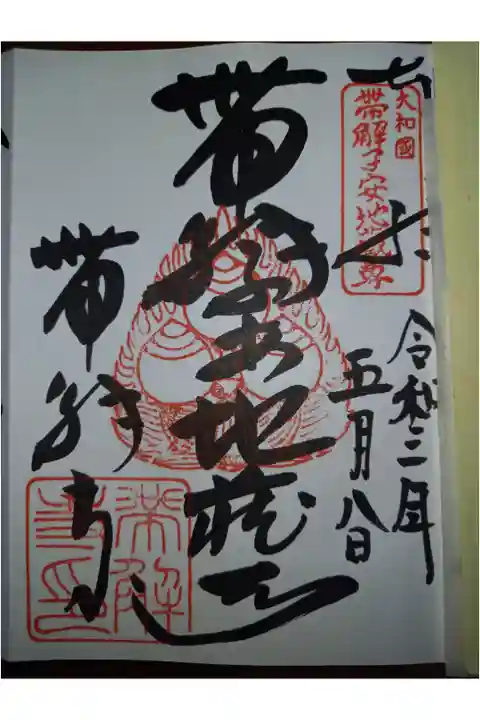 奉拝
大和國
帯解子安地蔵尊
令和二年
五月八日
帯解子安地蔵尊
帯解寺
帯解寺印